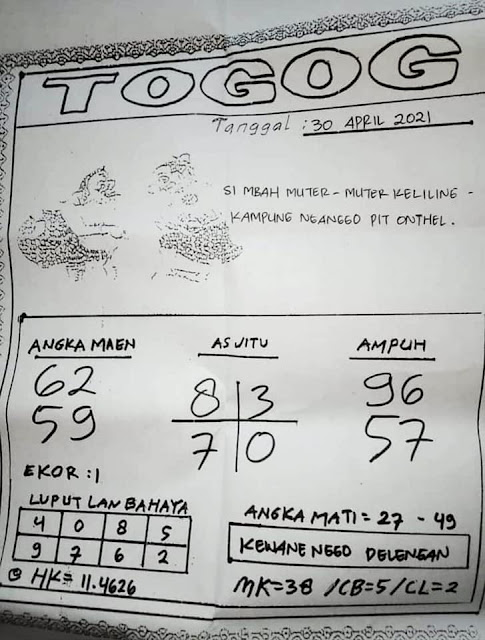 TOGOG
Tanggal : 30 APRIL 2021
SI MBAH MUTER - MUTER KELILING -
KAMPUNG NGANGGO PIT ONTHEL .
ANGKA MAEN
62
59
EKOR : 1
AS JITU
8 3
7 0
AMPUH
96
57
LUPUT LAN BAHAYA
4 0 8 5
9 7 6 2
HK = 11.4626
ANGKA MATI = 27 - 49
KEWANE NGGO DELENGAN
MK=38 /CB=5/CL=2